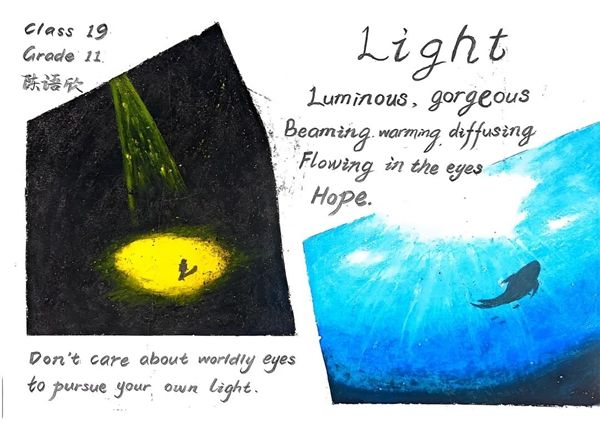 Class 19
Grade 11
陈语欣
Light
Luminous, gorgeous
Beaming, warming, diffusing
Flowing in the eyes
Hope.
Don't care about worldly eyes
to pursue your own light.